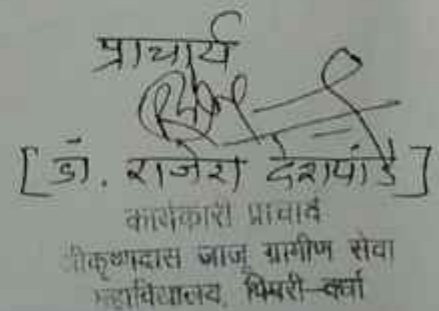 प्राचार्य
[डॉ. राजेश देशपांडे]
कार्यकारी प्राचार्य
श्रीकृष्णदास जाजू ग्रामीण सेवा
महाविद्यालय, पिपरी-वर्धा